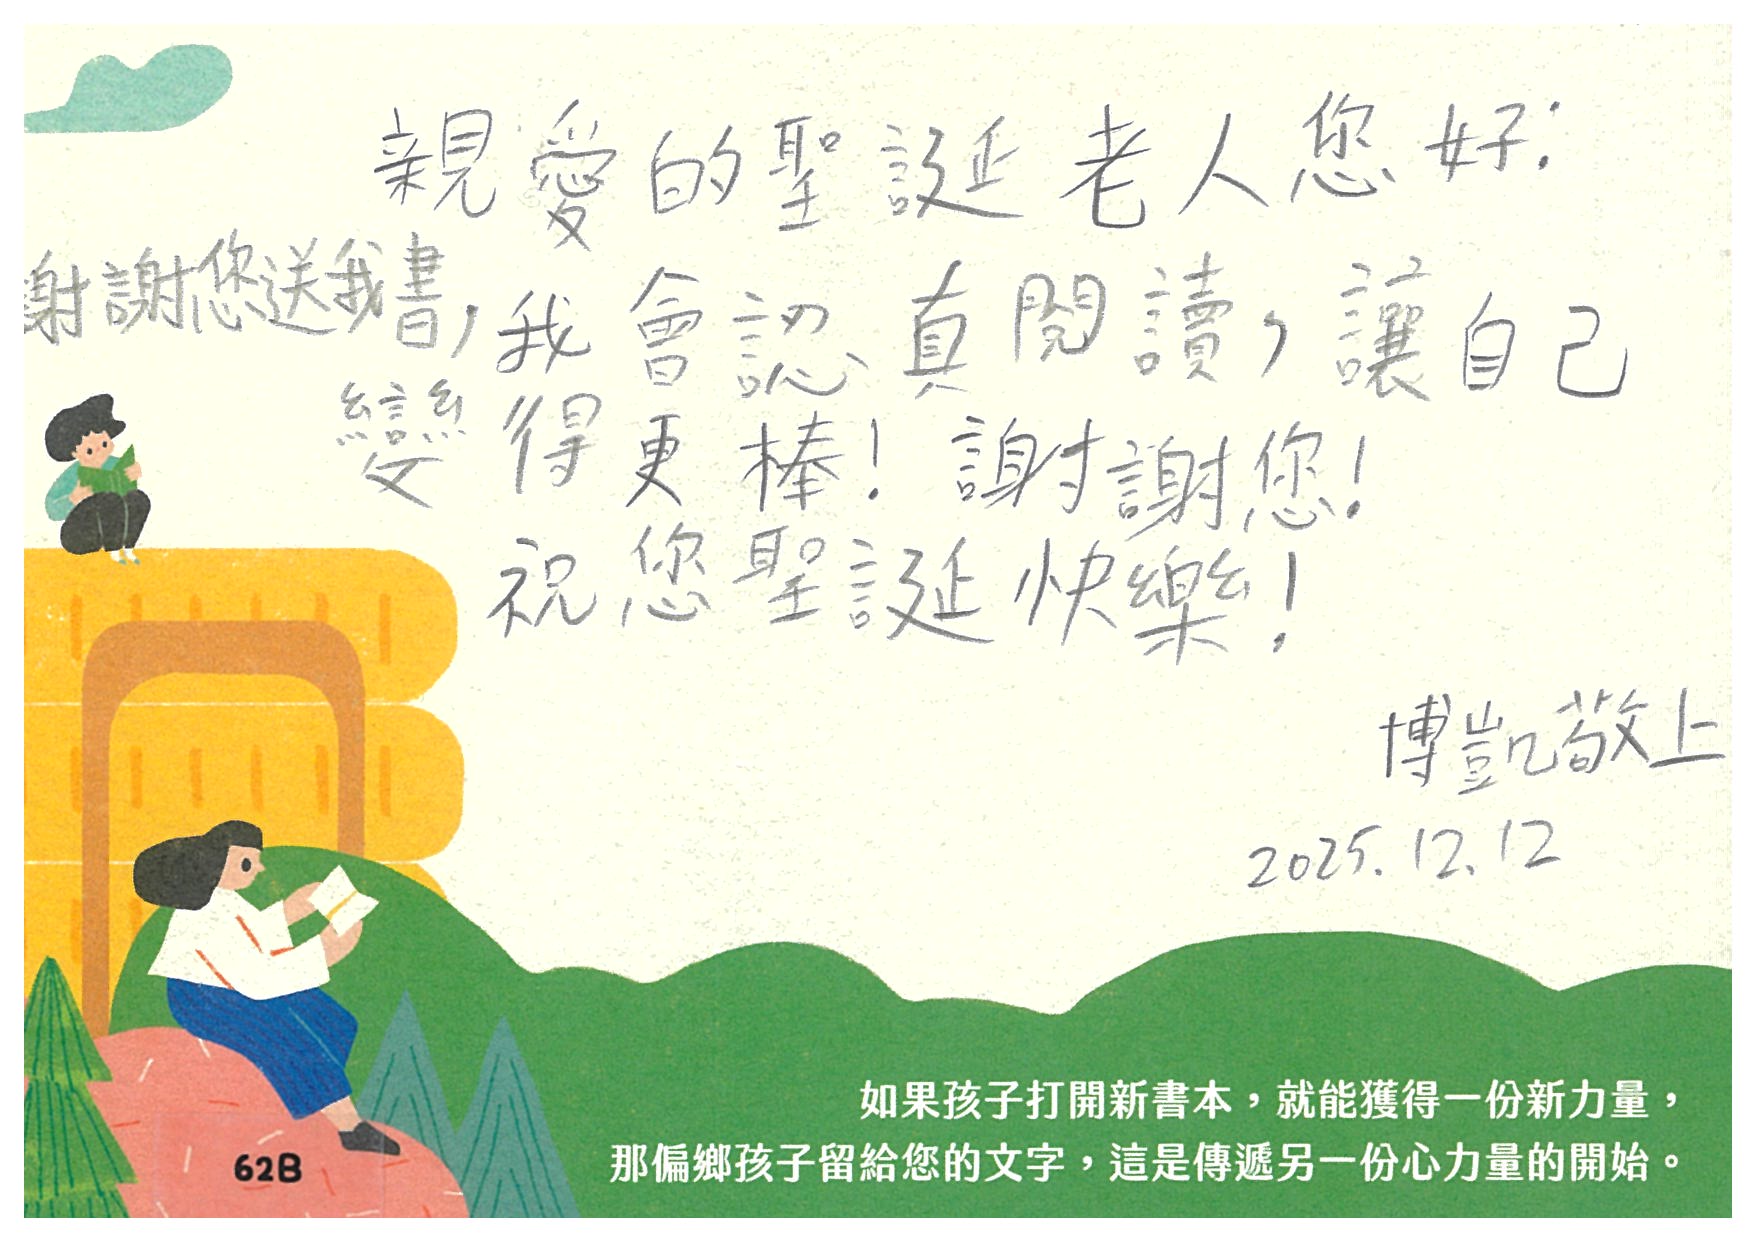 親愛的聖誕老人您好:
謝謝您送我書,我會認真閱讀,讓自己
變得更棒!謝謝您!
祝您聖誕快樂!
博凱敬上
2025.12.12
如果孩子打開新書本,就能獲得一份新力量,
那偏鄉孩子留給您的文字,這是傳遞另一份心力量的開始。
62B